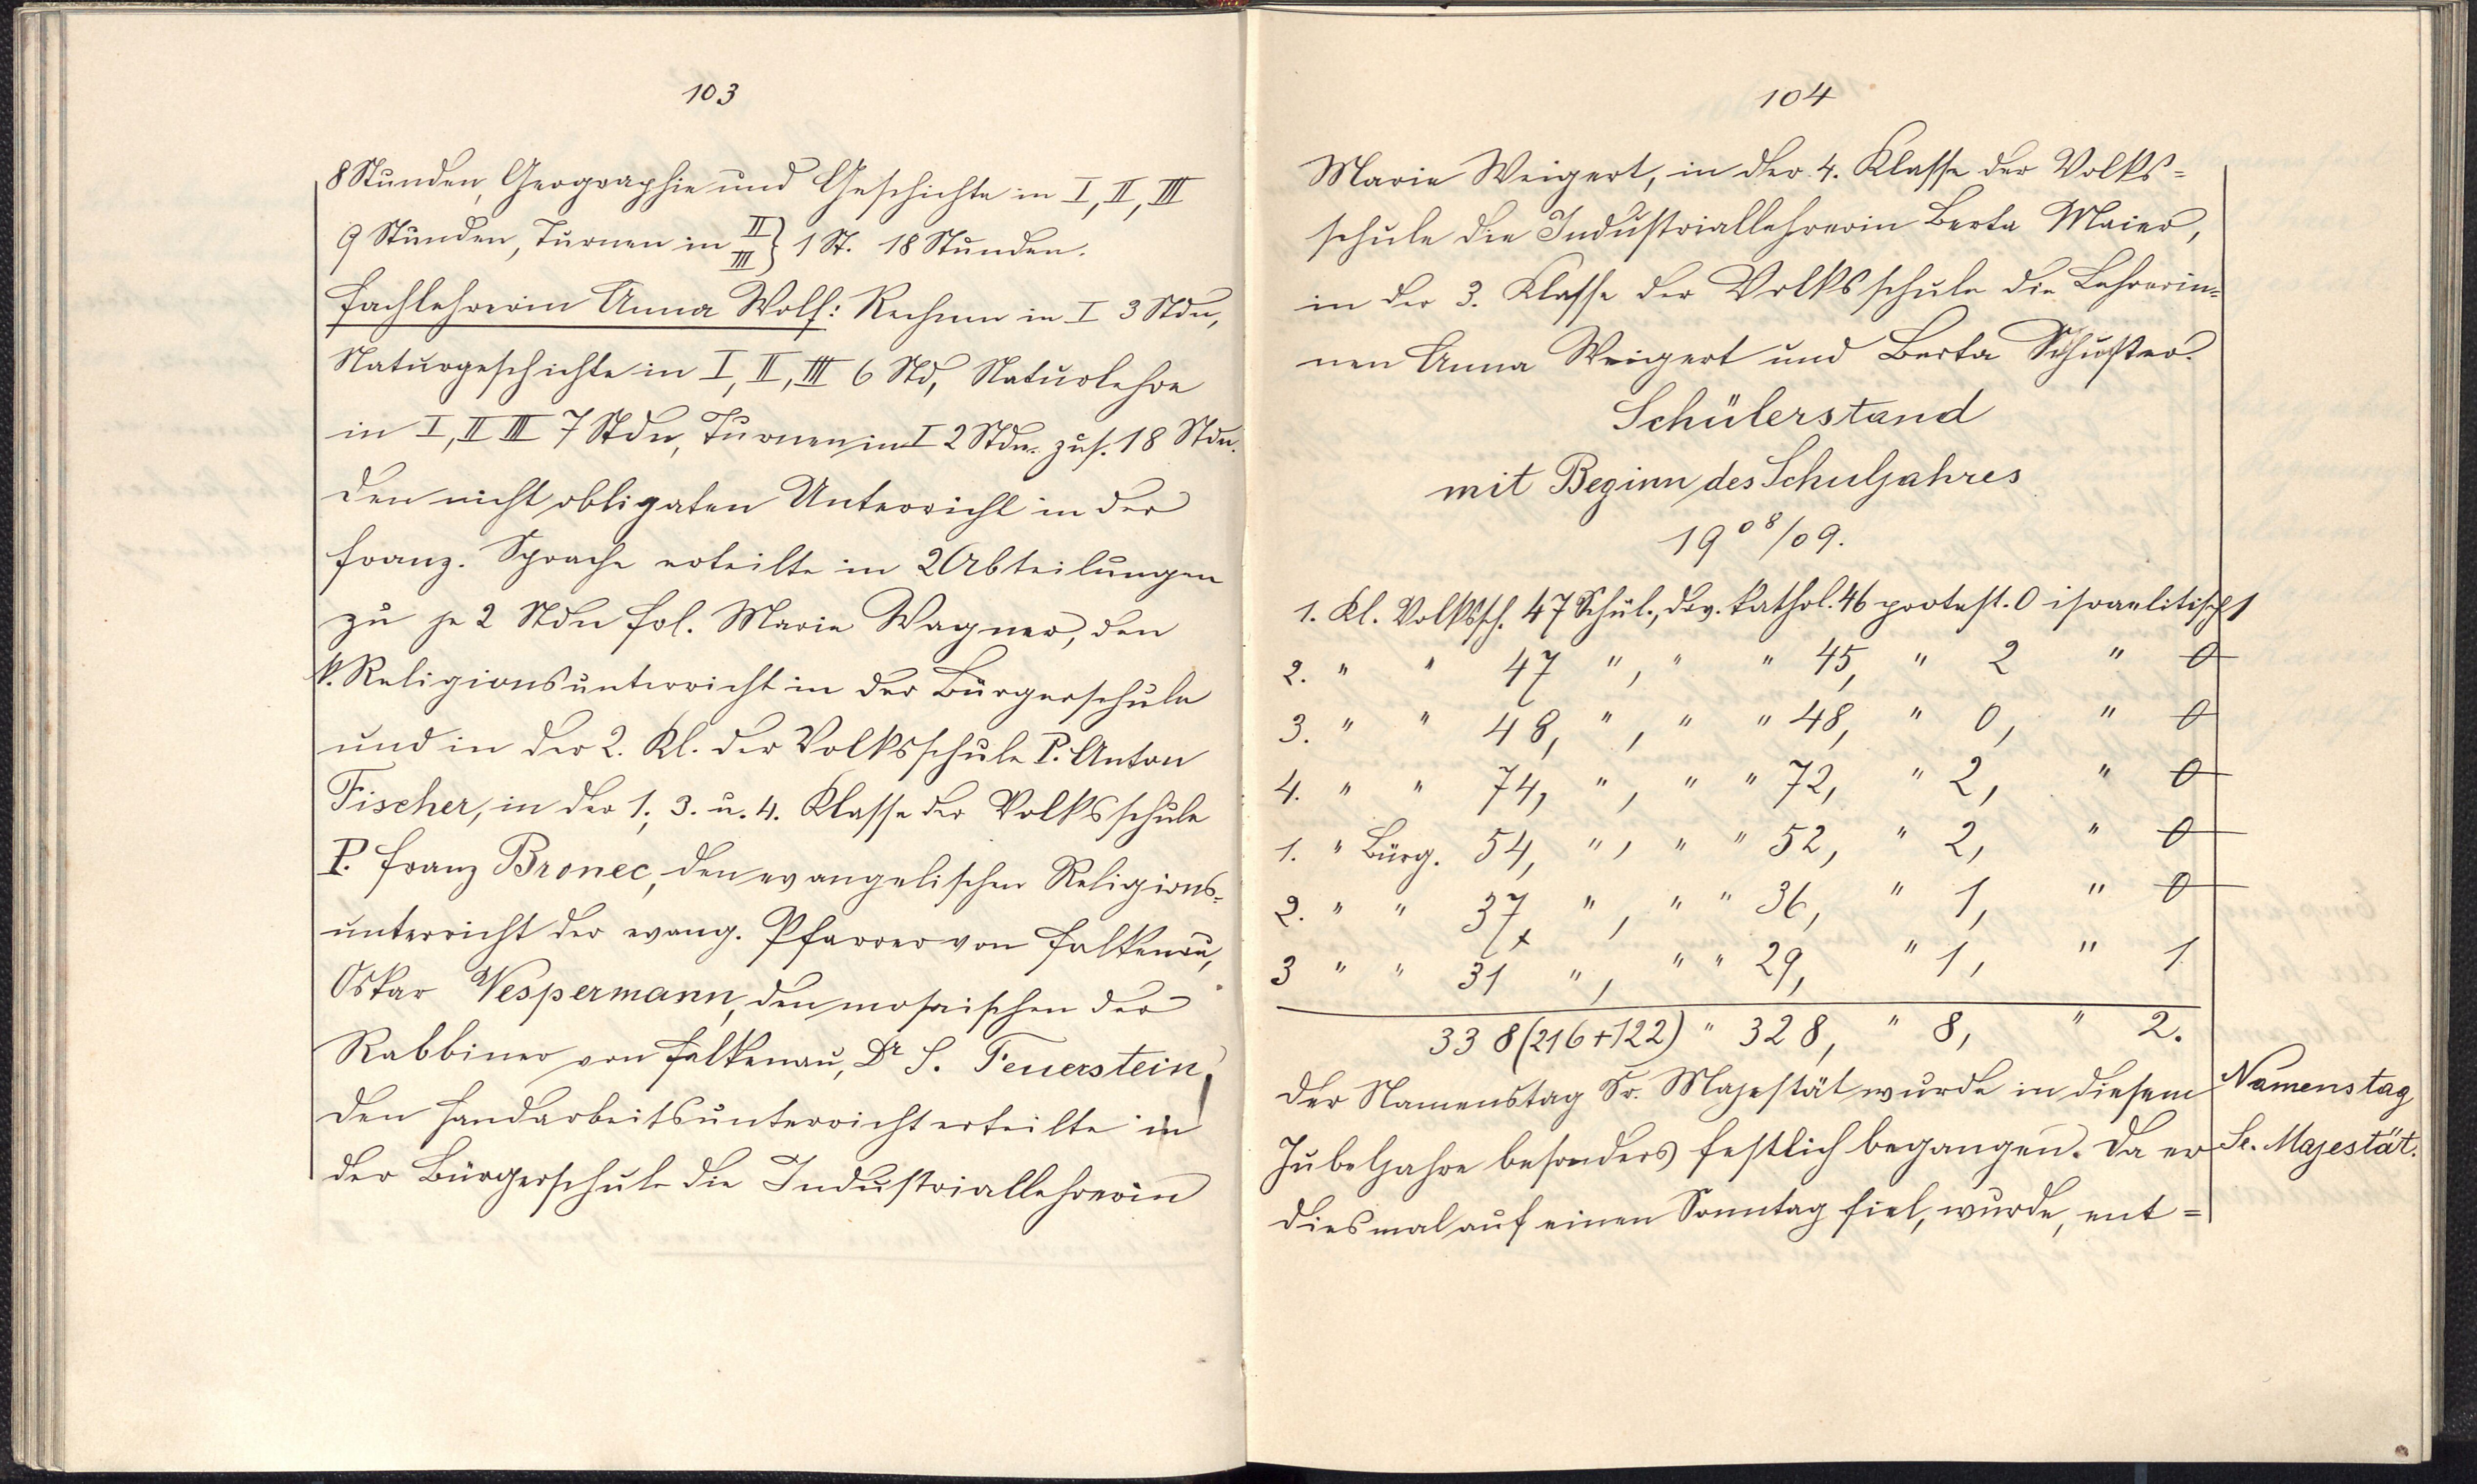 103
8 Stunden, Geographie und Geschichte in I, II, III
9 Stunden, Turnen in II III } 1 St. 18 Stunden.
Fachlehrerin Anna Wolf: Rechnen in I 3 Stdn,
Naturgeschichte in I, II, III 6 Std, Naturlehre
in I, II III 7 Stdn, Turnen in I 2 Stdn. zus. 18 Stdn.
Den nicht obligaten Unterricht in der
franz. Sprache erteilte in 2 Abteilungen
zu je 2 Stdn Frl. Marie Wagner, den
k. Religionsunterricht in der Bürgerschule
und in der 2. Kl. der Volksschule P. Anton
Fischer, in der 1., 3. u. 4. Klasse der Volksschule
P. Franz Bronec, den evangelischen Religions-
unterricht der evang. Pfarrer von Falkenau,
Oskar Vespermann, den mosaischen der
Rabbiner von Falkenau, Dr S. Feuerstein,
Den Handarbeitsunterricht erteilte in
der Bürgerschule die Industriallehrerin
104
Marie Weigert, in der 4. Klasse der Volks-
schule die Industriallehrerin Berta Maier,
in der 3. Klasse der Volksschule die Lehrerin-
nen Anna Weigert und Berta Schuster.
Schülerstand
mit Beginn des Schuljahres
1908/09.
1. Kl. Volkssch. 47 Schül., dav. kathol. 46 protest. 0 israelitisch 1
2. " " 47 ", " " 45, " 2 " 0
3. " " 48, ", " " 48, " 0, " 0
4. " " 74, ", " " 72, " 2, " 0
1. " Bürg. 54, ", " " 52, " 2, " 0
2. " " 37, ", " " 36, " 1, " 0
3 " " 31 ", " " 29, " 1, " 1
338 (216+122) " 328, " 8, " 2.
Der Namenstag Sr. Majestät wurde in diesem
Jubeljahre besonders festlich begangen. Da er
diesmal auf einen Sonntag fiel, wurde, ent-
Namenstag
Sr. Majestät.